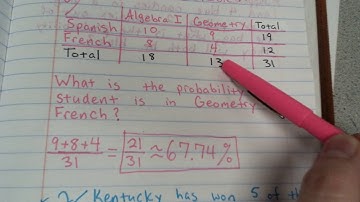 2) Algebra I Geometry Total
Spanish 10 9 19
French 8 4 12
Total 18 13 31
What is the probability
student is in Geometry
French?
9+8+4/31 = 21/31 ≈ 67.74%
Kentucky has won 5 of the